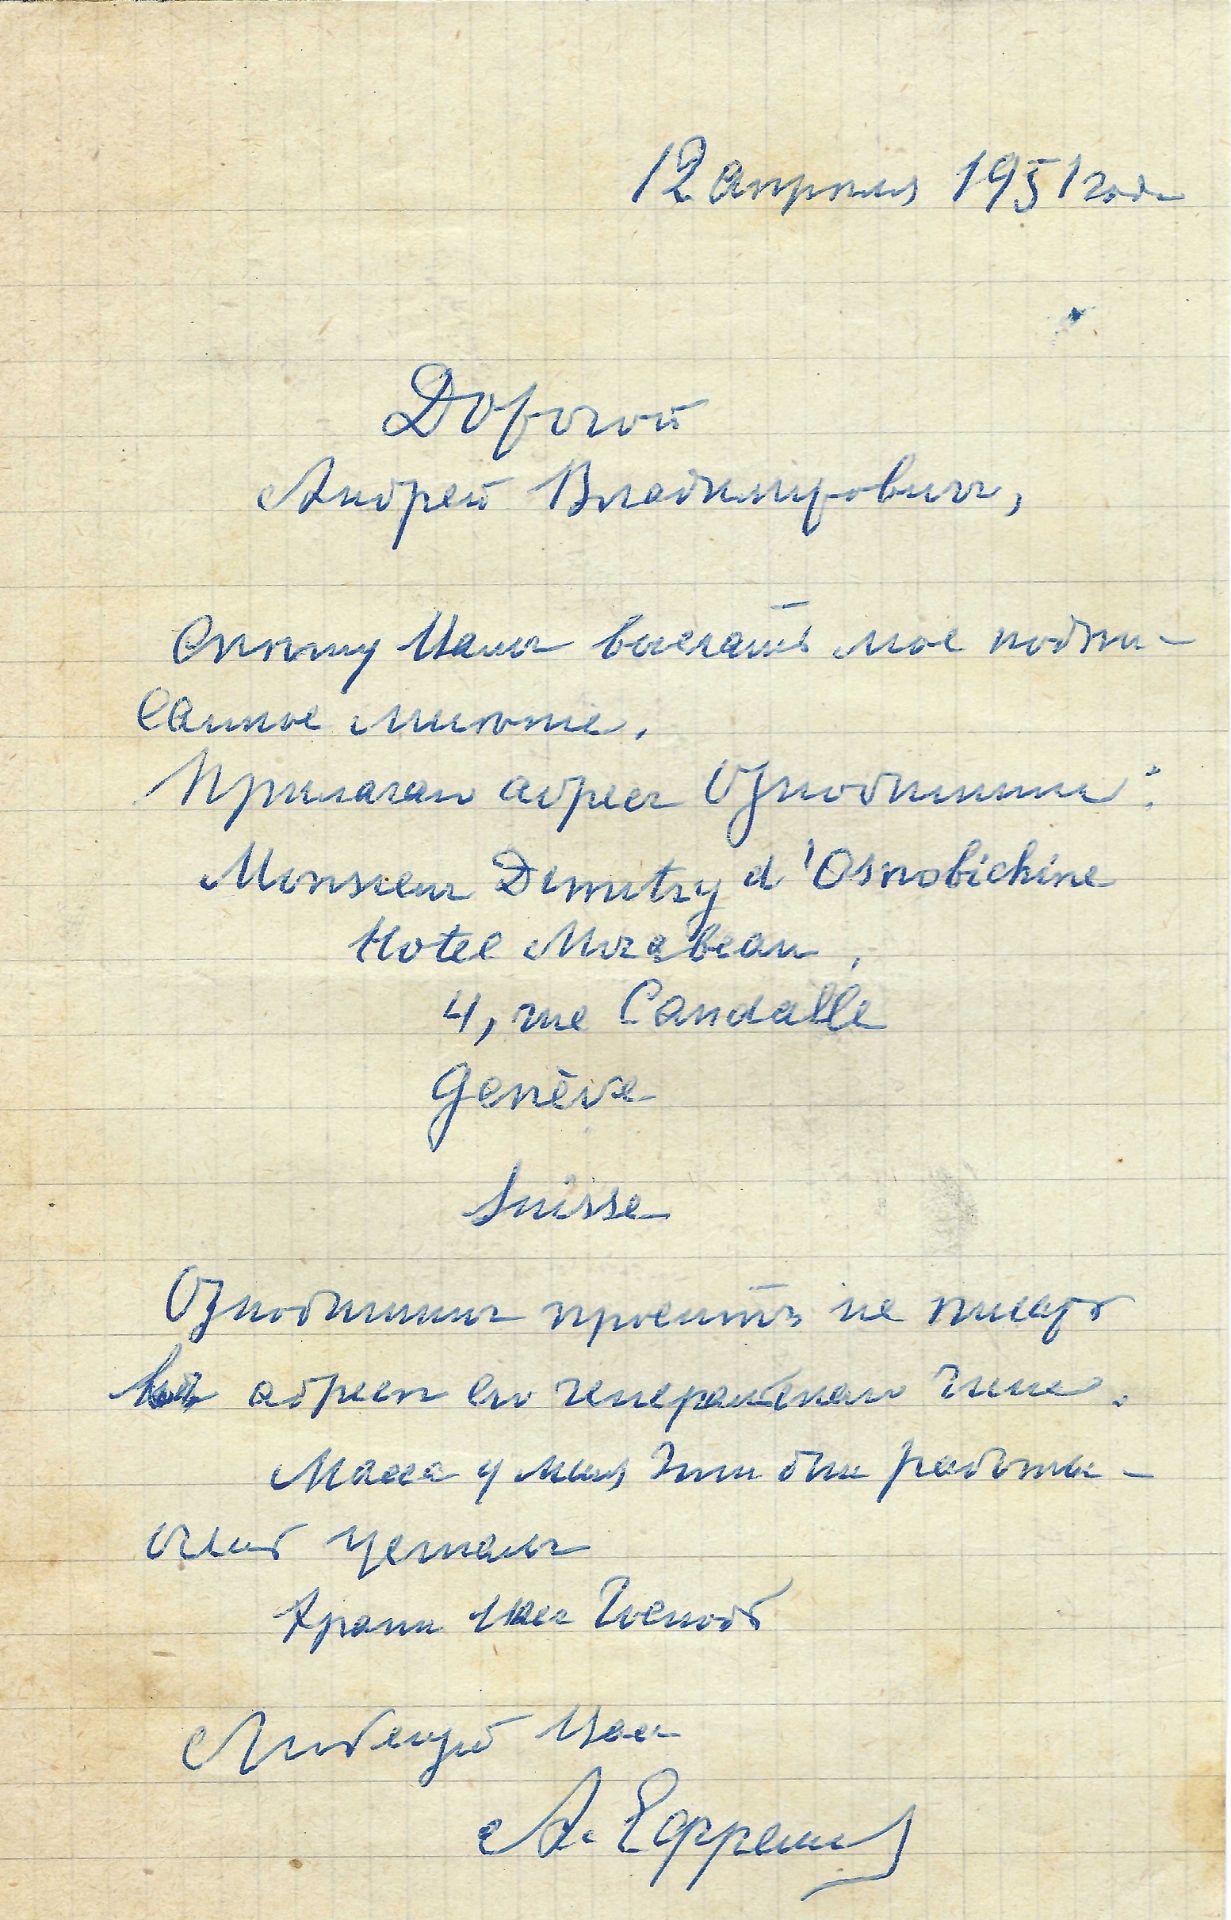 12 апреля 1951 года
Дорогой
Андрей Владимирович,
Спешу Вамъ выслать мое подпи-
санное мнѣнie.
Прилагаю адресъ Ознобишина:
Monsieur Dimitry d'Osnobichine
Hotel Mirabeau,
4, rue Candolle
Genève
Suisse
Ознобишинъ проситъ не писать
въ адресѣ его генеральскаго чина.
Масса у меня эти дни работы –
очень усталъ
Храни Васъ Господь
Любящий Васъ
А.